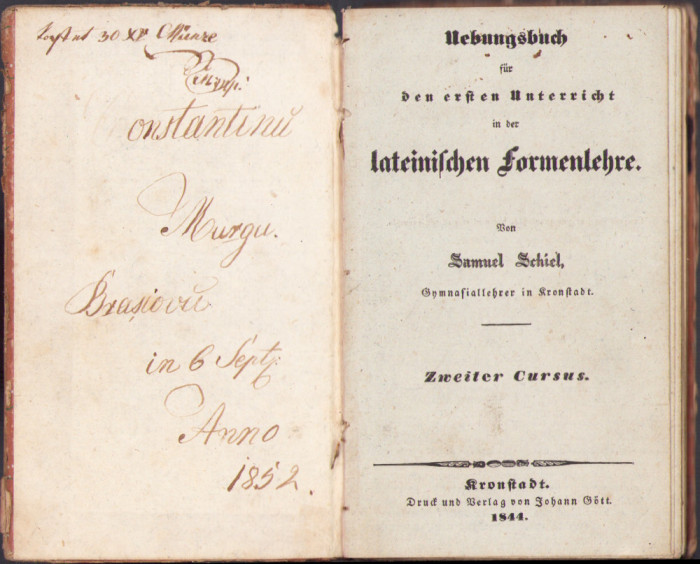 Kostet 30 Xr Münze
Constantinu
Murgu.
Brasiovu
in 6 Sept:
Anno
1852.
Uebungsbuch
für
den ersten Unterricht
in der
lateinischen Formenlehre.
Von
Samuel Schiel,
Gymnasiallehrer in Kronstadt.
Zweiter Cursus.
Kronstadt.
Druck und Verlag von Johann Gött.
1844.